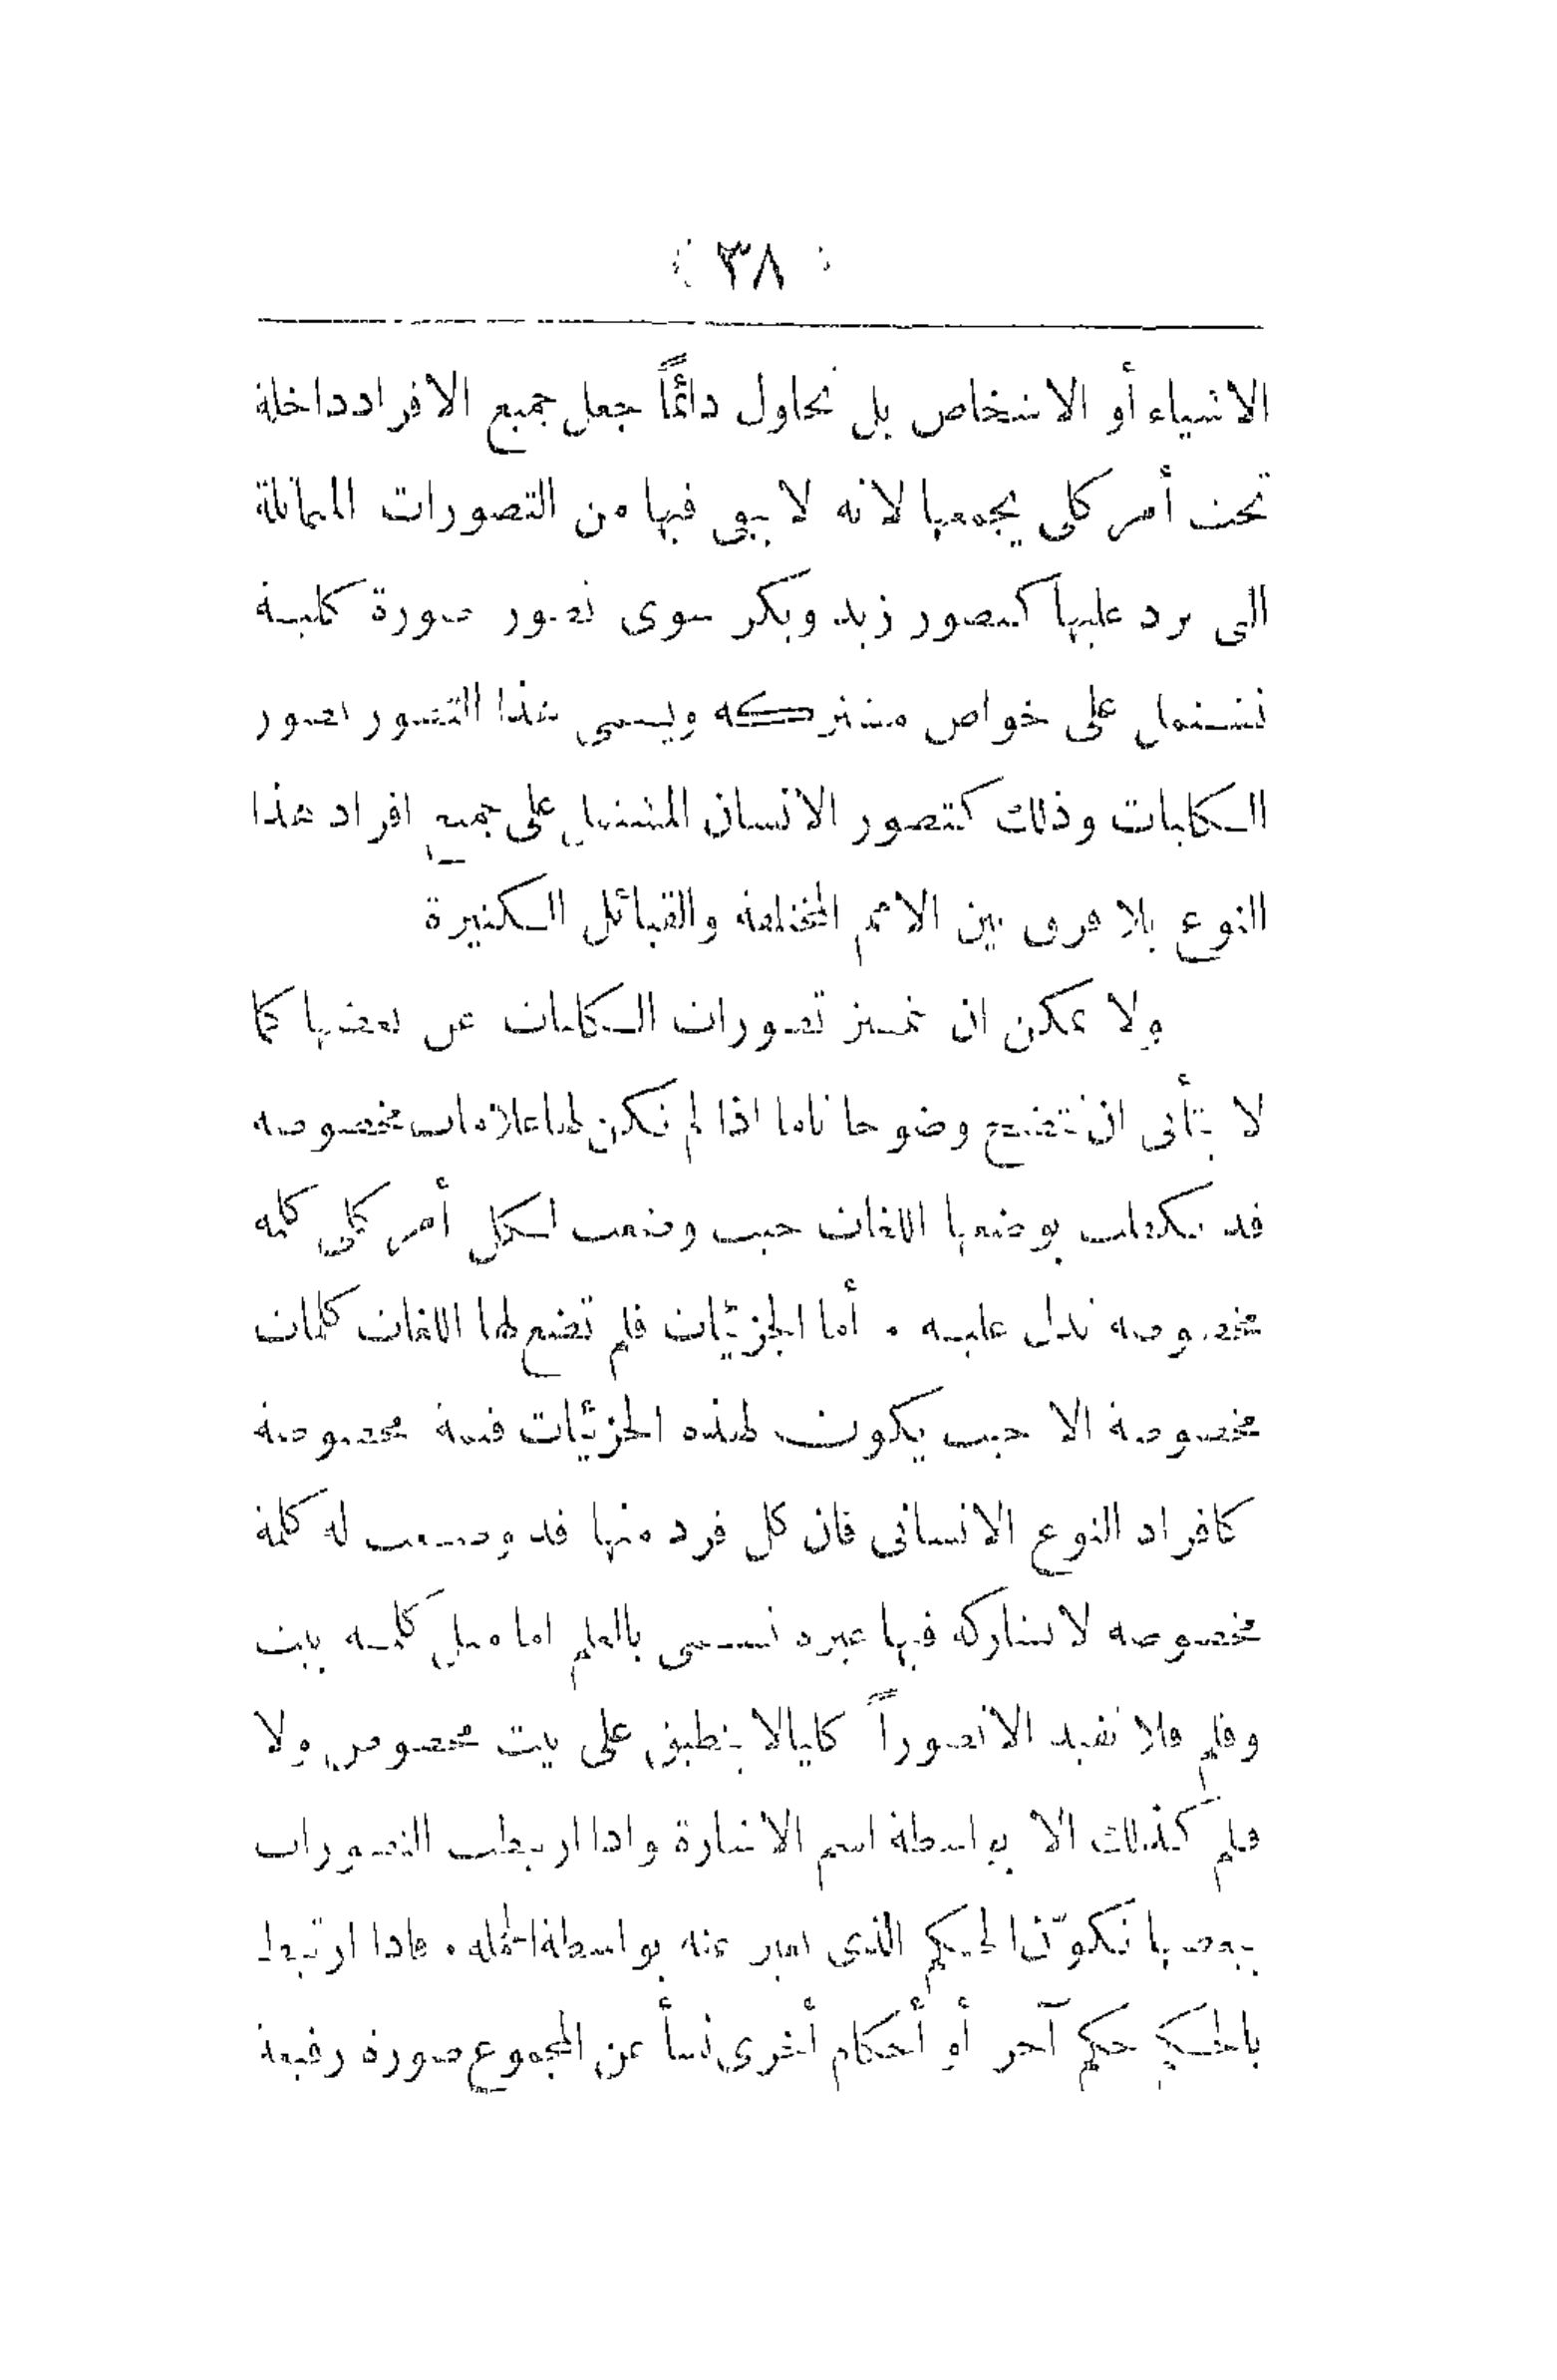 ﴿ ٣٨ ﴾
الاشياء أو الاشخاص بل نحاول دائمًا جعل جميع الافراد داخلة
تحت أمر كلى يجمعها لانه لا يبقى فيها من التصورات المماثلة
التى ترد عليها كتصور زيد وبكر سوى تصور صورة كليــة
تشتمل على خواص مشتركة ويسمى هذا التصور تصور
الكليات وذلك كتصور الانسان المشتمل على جميع افراد هذا
النوع بلا فرق بين الامم المختلفة والقبائل الكثيرة
ولا يمكن ان تميز تصورات الكليات عن بعضها كما
لا يتأتى ان تتضح وضوحا تاما اذا لم تكن لها علامات مخصوصة
قد تكفلت بوضعها اللغات حيث وضعت لكل أمر كلى كلمة
مخصوصة تدل عليه ٠ أما الجزئيّات فلم تضع لها اللغات كلمات
مخصوصة الا حيث يكون لهذه الجزئيّات قيمة مخصوصة
كافراد النوع الانسانى فان كل فرد منها قد وضعت له كلمة
مخصوصة لا يشاركه فيها غيره تسمى بالعلم اما مثل كلمة بيت
وقلم فلا تفيد الا تصوراً كليا لا ينطبق على بيت مخصوص ولا
قلم كذلك الا بواسطة اسم الاشارة واذا ارتبطت التصورات
ببعضها تكوّن الحكم الذى يعبر عنه بواسطة الجملة ٠ فاذا ارتبط
بالحكم حكم آخر أو أحكام أخرى نشأ عن المجموع صورة رفيعة